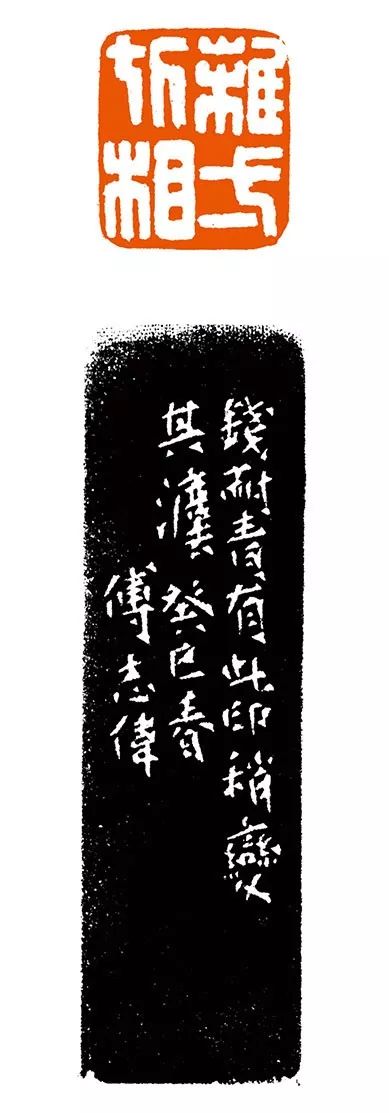 相
錢耐青有此印稍變
其灋癸巳春
傅志偉